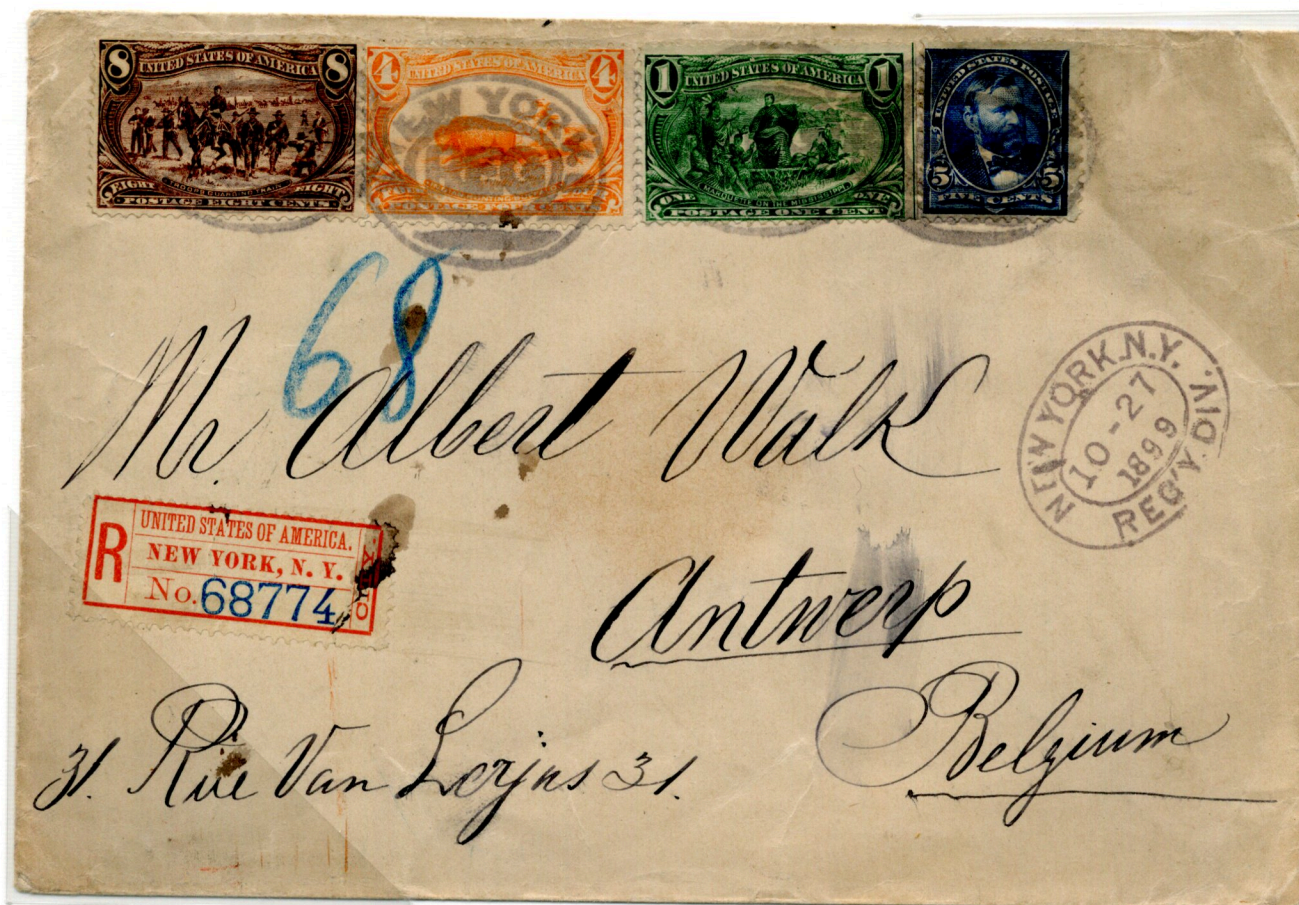 8 UNITED STATES OF AMERICA 8
EIGHT TROOPS GUARDING TRAIN EIGHT
POSTAGE EIGHT CENTS
4 UNITED STATES OF AMERICA 4
NEW YORK
1 UNITED STATES OF AMERICA 1
MARQUETTE ON THE MISSISSIPPI
ONE POSTAGE ONE CENT ONE
UNITED STATES POSTAGE
5 5
FIVE CENTS
68
Mr Albert Walk
NEW YORK, N.Y.
10-27
1899
REG'Y. DIV.
R
UNITED STATES OF AMERICA.
NEW YORK, N. Y.
No. 68774
Antwerp
Belgium
31. Rue Van Lerjus 31.